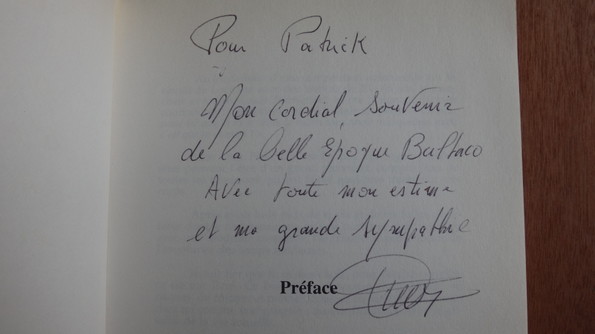 Pour Patrick
Mon cordial souvenir
de la belle Epoque Baltaco
Avec toute mon estime
et ma grande sympathie
Préface